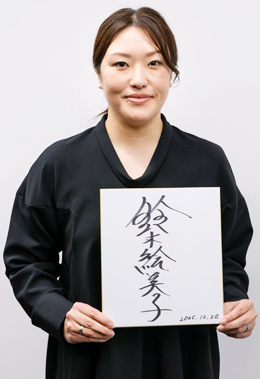 鈴木絵美子
2025.12.22